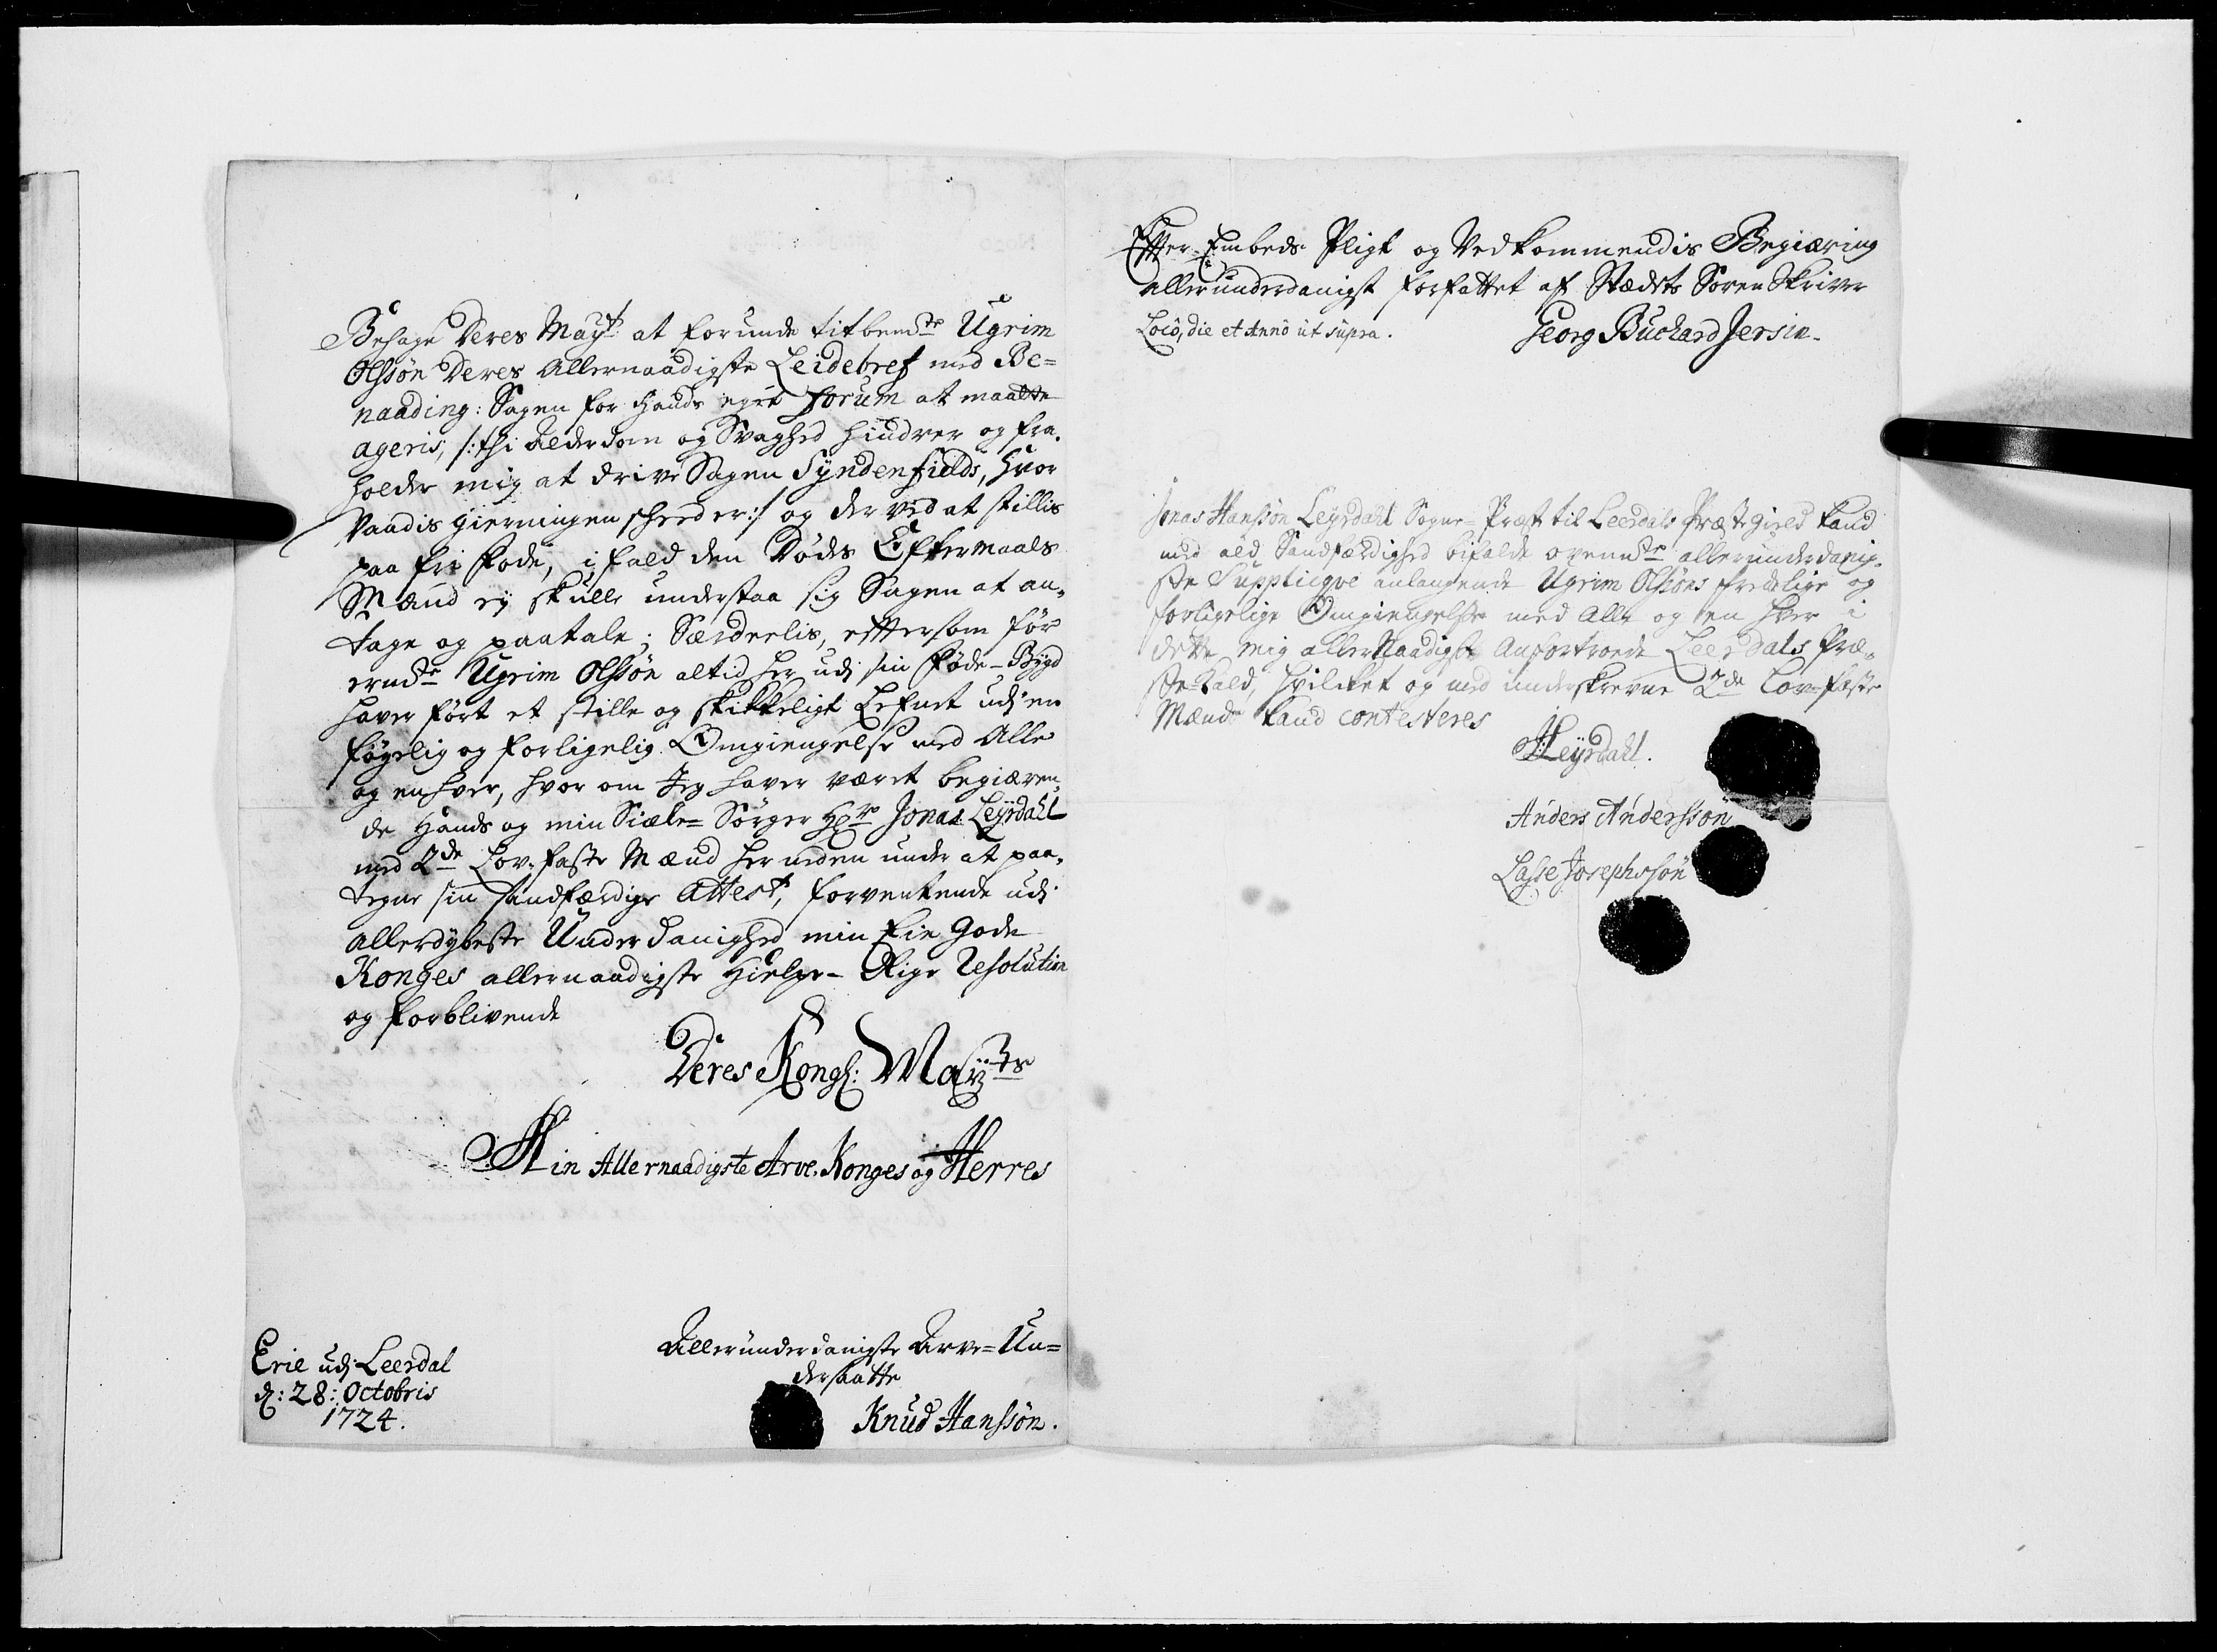 Behage Deres Mayt: at forunde titbemte Ugrim
Olssøn Deres Allernaadigste Leidebref med Be=
naading: Sagen for hands eget Forum at maatte
ageris, /: thi Alderdom og Svaghed hindrer og fra-
holder mig at drive Sagen Syndenfields, hvor
Vaadis gierningen skeed er :/ og der ved at stillis
paa fri fode, ifald den Dødes Eftermaals
Mænd ej skulle understaa sig Sagen at an-
tage og paatale; Særdeelis, eftersom før
ermte Ugrim Olssøn altid her udi sin føde-Bygd
haver ført et stille og skikkeligt Lefnet udi en
føyelig og forligelig Omgiengelse med Alle
og enhver, hvor om Jeg haver været begiæren-
de Hands og min Siæle= Sørger Hr Jonas Leyrdahl
med 2de Lov-faste Mænd her neden under at paa-
tegne sin sandfærdige Attest, forventende udi
allerdybeste Underdanighed min Eie Gode
Konges allernaadigste Hielpe- Rige Resolution
og forblivende
Deres Kongl: Mayts
Min Allernaadigste Arve-Konges og Herres
Erie udi Leerdal
d: 28: Octobris
1724.
Allerunderdanigste Arve=Un=
dersaatte
Knud Hanssøn.
Efter Embeds Pligt og Vedkommendis Begiæring
allerunderdanigst forfattet af Stædets Soren Skriver
Loco, die et Anno ut supra.
Georg Buchard Jersin.
Jonas Hanssøn Leyrdahl Sogne=Præst til Leerdals Præstegield kand
med all Sandfærdighed bifalde ovenmte allerunderdanig-
ste Supplicqve anlangende Ugrim Olssøns fredelige og
forligelige Omgiengelse med Alle og en hver i
dette mig allernaadigst Anfortroede Leerdals Præ-
ste-Kald, hvilcket og med underskrevne 2de Lov-faste
Mænd kand contesteres
JHLeyrdahl.
Anders Anderssøn
Lasse Josephssøn